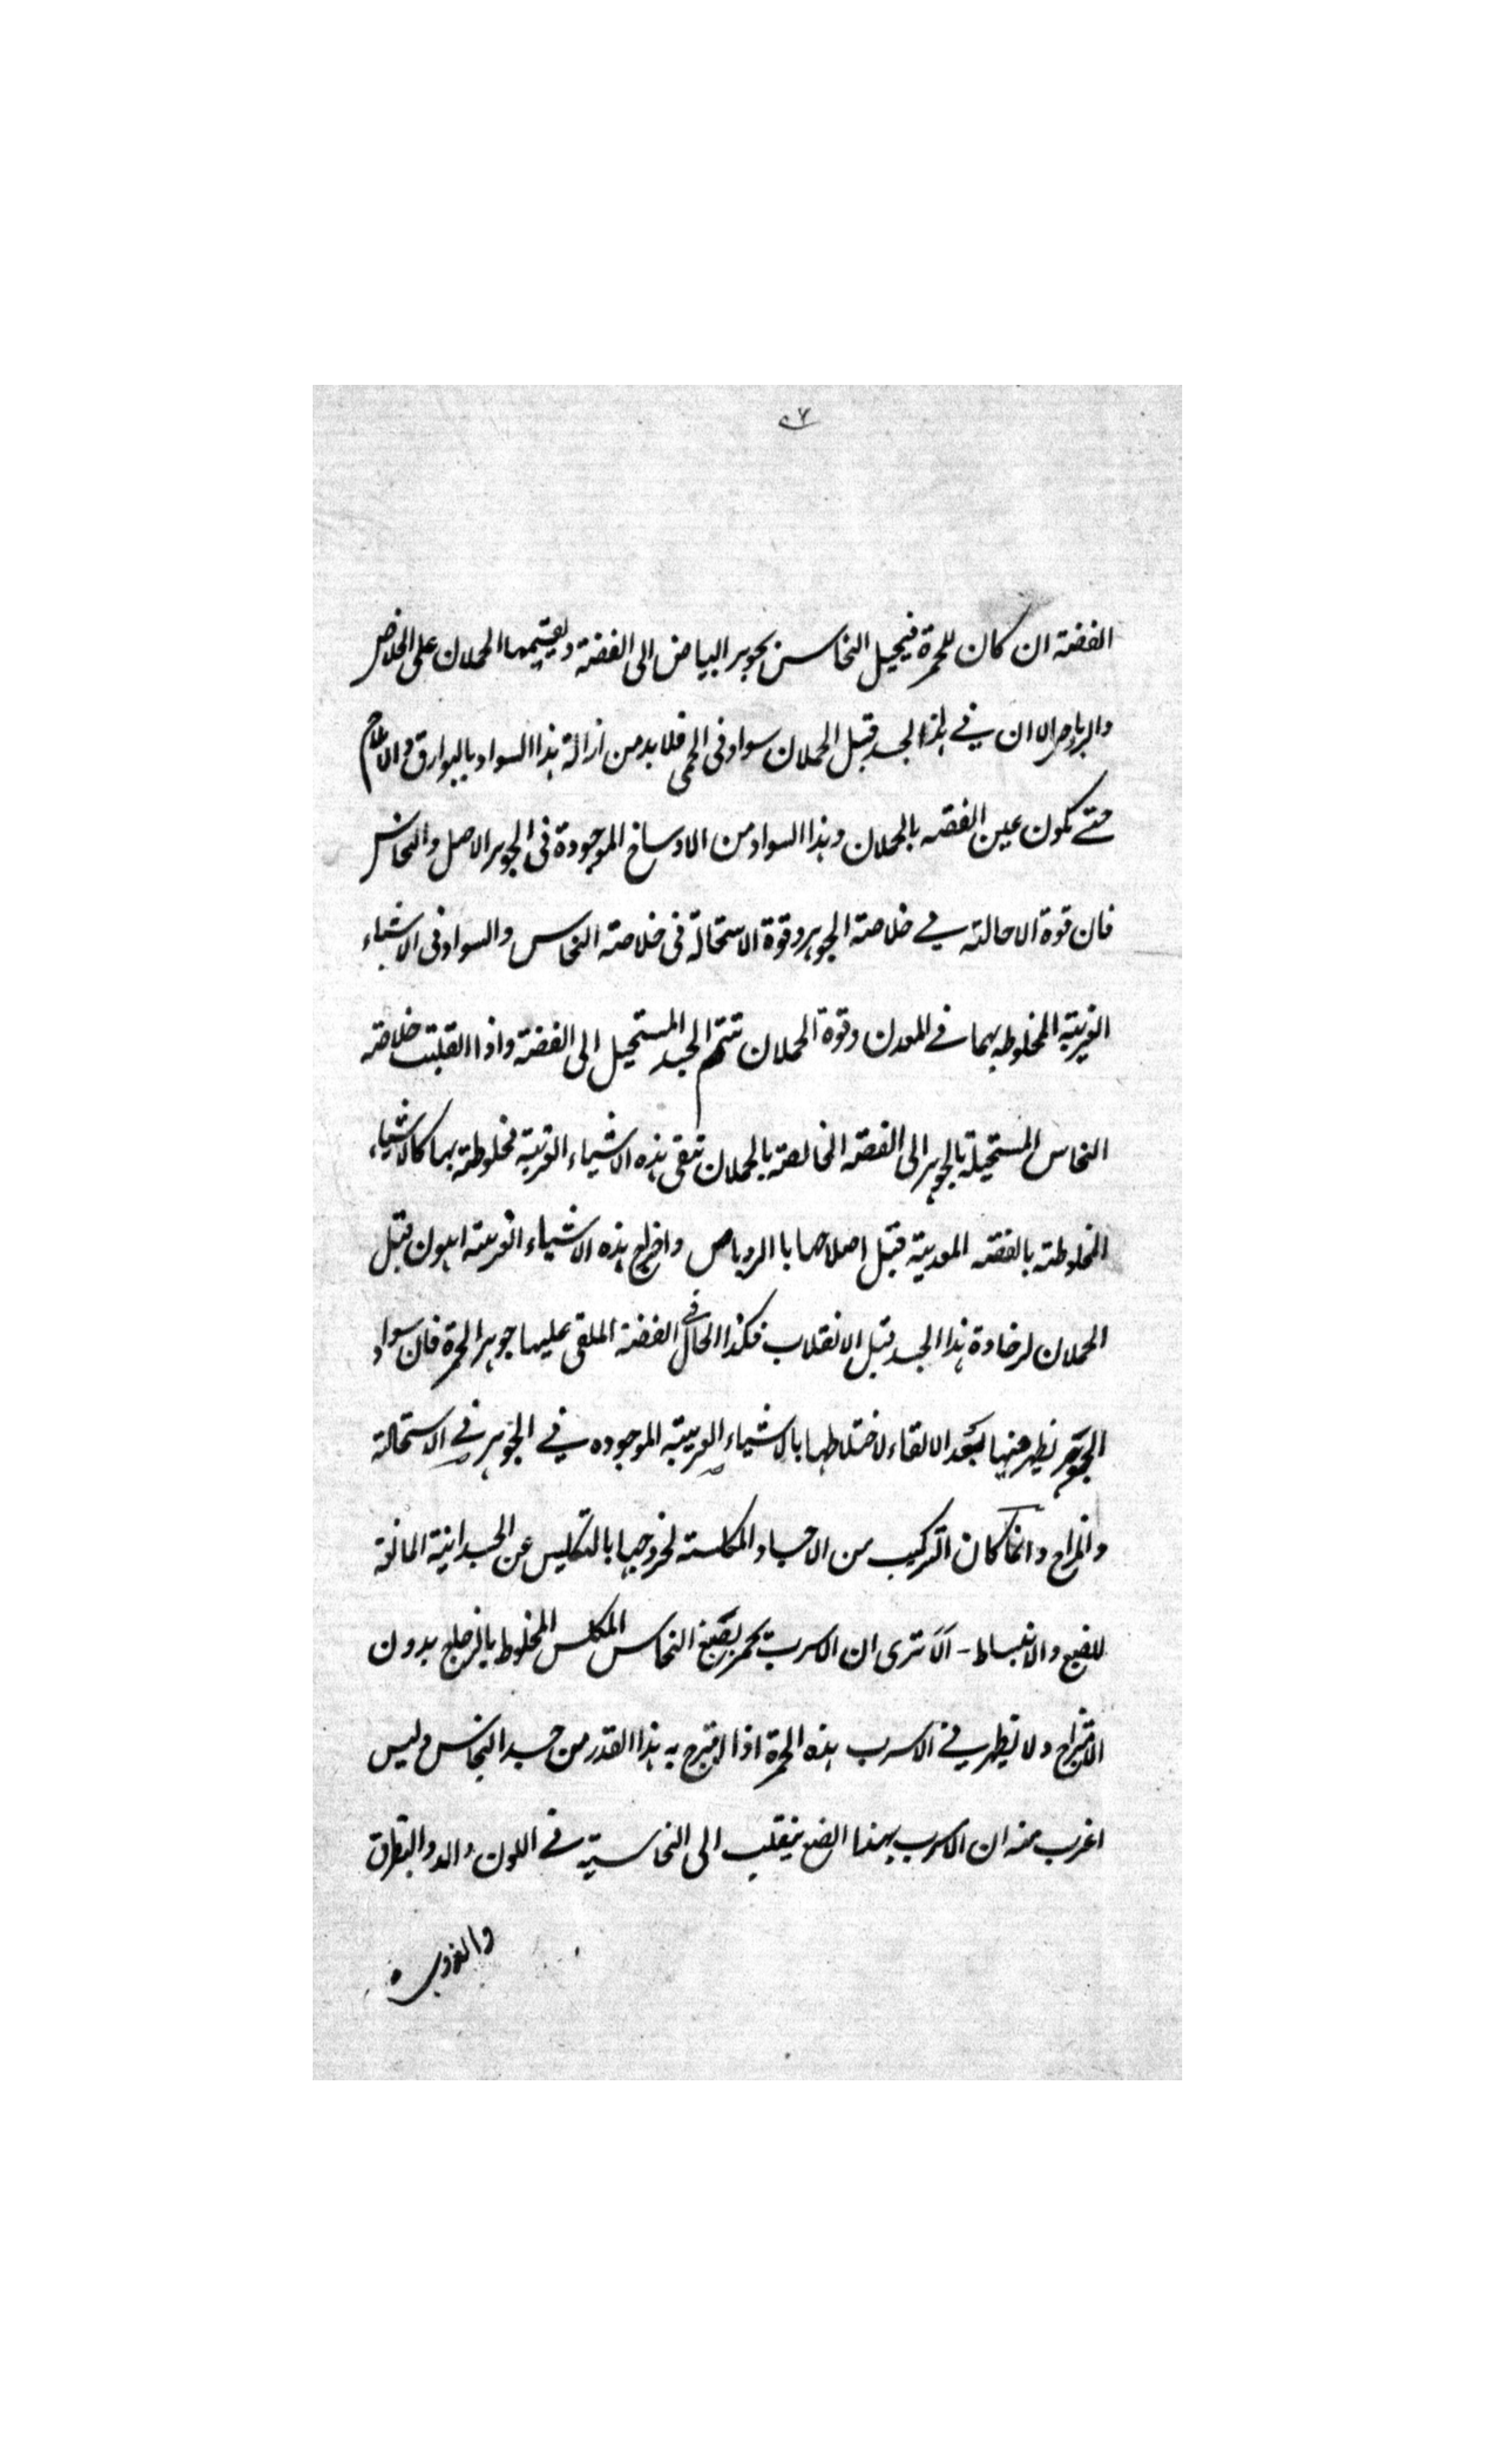 الفضة ان كان للحمرة فيحيل النحاس بجوهر البياض الى الفضة ويقيمها الحملان على الخلاص
والروباص الا ان في هذا الجسد قبل الحملان سواد فى الحمى فلا بد من ازالة هذا السواد بالبوارق والاملاح
حتے تكون عين الفضه بالحملان وهذا السواد من الاوساخ الموجودة فى الجوهر الاصل والنحاس
فان قوة الاحالته في خلاصته الجوهر وقوة الاستحالة فى خلاصته النحاس والسواد فى الاشياء
الغريبته المخلوطه بهما في المعدن وقوة الحملان تتم الجسد المستحيل الى الفضة واذا انقلبت خلاصته
النحاس المستحيلة بالجوهر الى الفضه الخالصة بالحملان تبقى هذه الاشياء الغريبة مخلوطة بها كالاشياء
المخلوطته بالفضته المعدنية قبل اصلاحها با الروباص واخراج هذه الاشياء الغريبته اهون قبل
الحملان لرخاوة هذا الجسد قبل الانقلاب فكذا الحال في الفضة الملقى عليها جوهر الحمرة فان سواد
الجوهر يظهر فيها بعد الالقاء لاختلاطها بالاشياء الغريبته الموجوده في الجوهر في الاستحالة
والمزاج وانما كان التركيب من الاجساد المكلسته لخروجها بالتكليس عن الجسدانية المانعة
للصبغ والانبساط - اَلَا ترى ان الاسرب يحمر بصبغ النحاس المكلس المخلوط بالزجاج بدون
الامتزاج ولا يظهر في الاسرب هذه الحمرة اذا امتزج به هذا القدر من جسد النحاس وليس
اغرب منه ان الاسرب بهذا الصبغ ينقلب الى النحاسية في اللون والتطرق